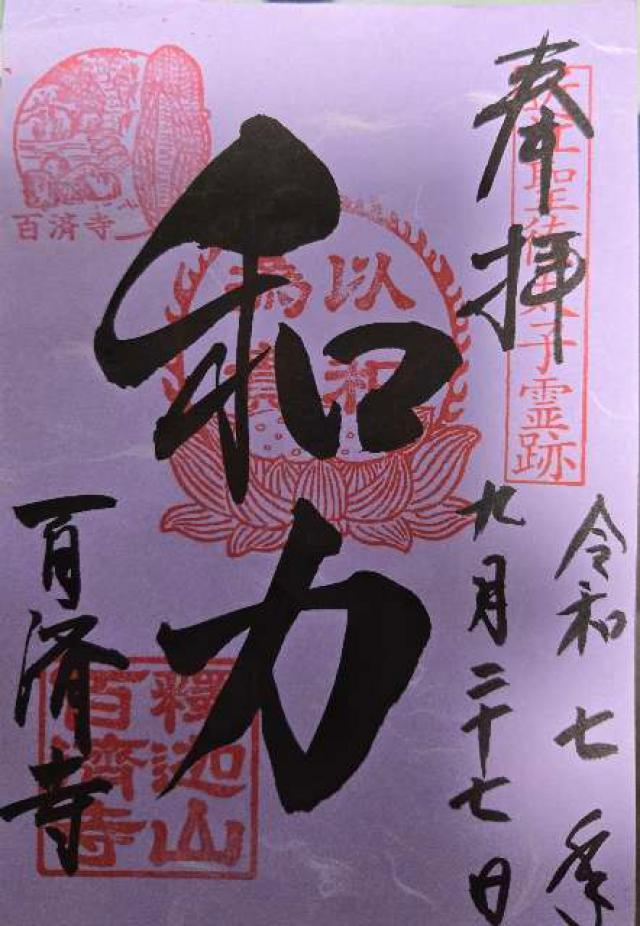 奉拝
聖徳太子霊跡
令和七年
九月二十七日
和力
以和
為貴
百済寺
百済寺
釋迦山
百濟寺